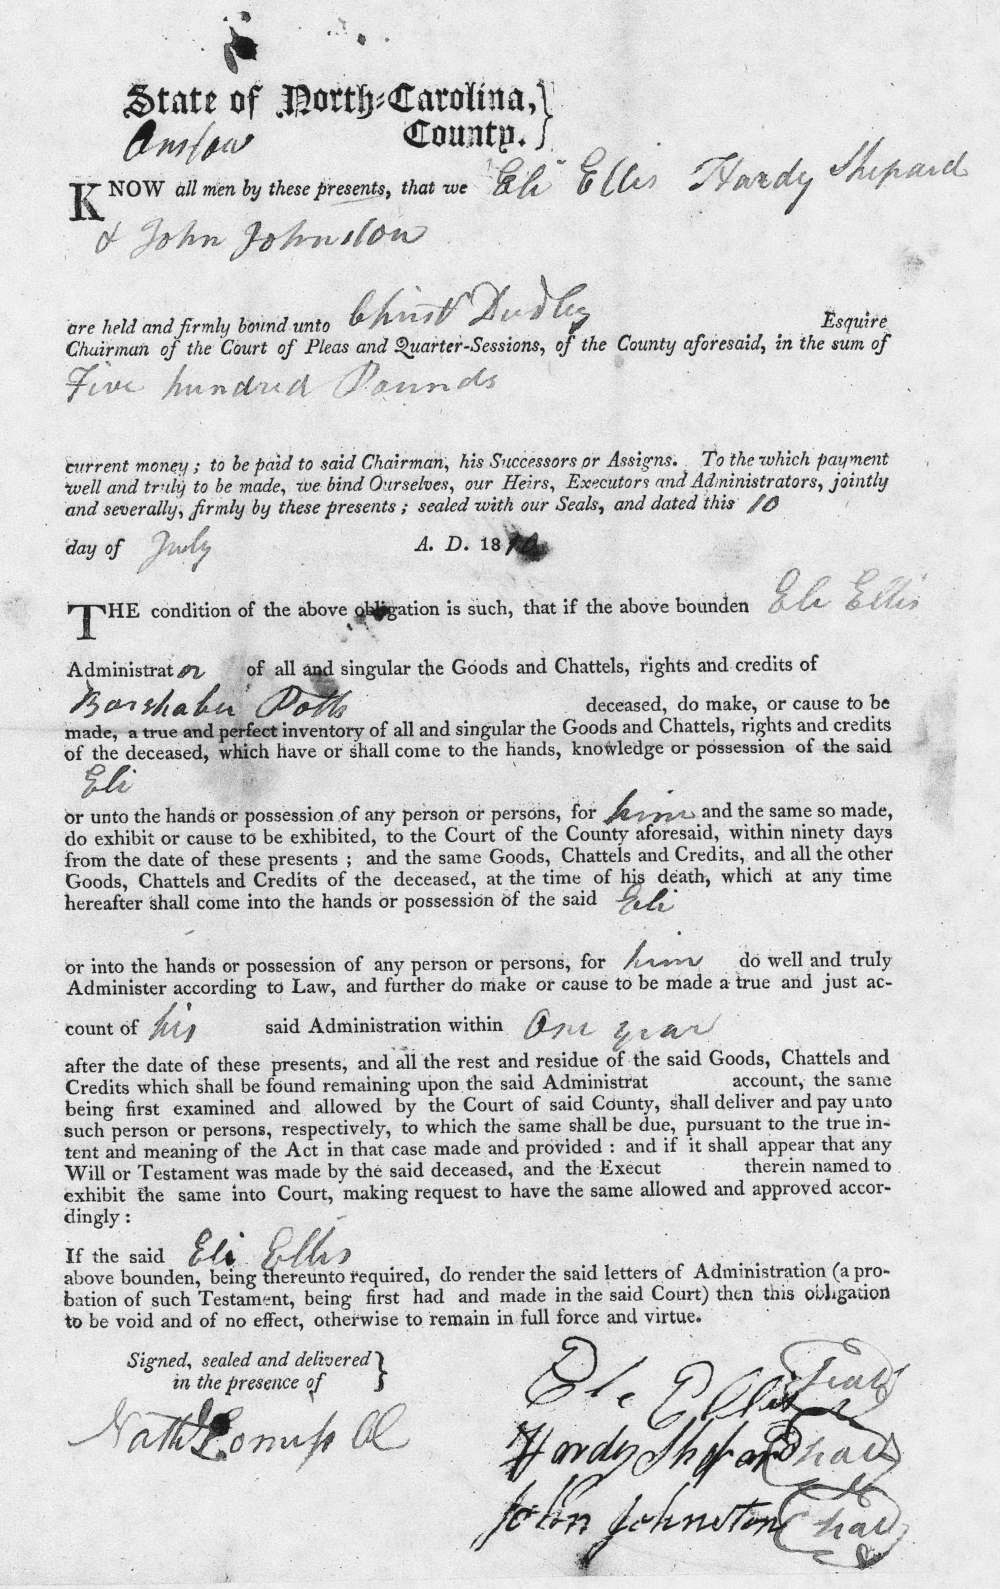 State of North-Carolina,
Onslow County.
KNOW all men by these presents, that we Eli Ellis Hardy Shepard
& John Johnston
are held and firmly bound unto Christ Dudley Esquire
Chairman of the Court of Pleas and Quarter-Sessions, of the County aforesaid, in the sum of
Five hundred Pounds
current money; to be paid to said Chairman, his Successors or Assigns. To the which payment
well and truly to be made, we bind Ourselves, our Heirs, Executors and Administrators, jointly
and severally, firmly by these presents; sealed with our Seals, and dated this 10
day of July A. D. 18
THE condition of the above obligation is such, that if the above bounden Eli Ellis
Administrator of all and singular the Goods and Chattels, rights and credits of
Potts deceased, do make, or cause to be
made, a true and perfect inventory of all and singular the Goods and Chattels, rights and credits
of the deceased, which have or shall come to the hands, knowledge or possession of the said
Eli
or unto the hands or possession of any person or persons, for him and the same so made,
do exhibit or cause to be exhibited, to the Court of the County aforesaid, within ninety days
from the date of these presents; and the same Goods, Chattels and Credits, and all the other
Goods, Chattels and Credits of the deceased, at the time of his death, which at any time
hereafter shall come into the hands or possession of the said Eli
or into the hands or possession of any person or persons, for him do well and truly
Administer according to Law, and further do make or cause to be made a true and just ac-
count of his said Administration within One year
after the date of these presents, and all the rest and residue of the said Goods, Chattels and
Credits which shall be found remaining upon the said Administrat account, the same
being first examined and allowed by the Court of said County, shall deliver and pay unto
such person or persons, respectively, to which the same shall be due, pursuant to the true in-
tent and meaning of the Act in that case made and provided: and if it shall appear that any
Will or Testament was made by the said deceased, and the Execut therein named to
exhibit the same into Court, making request to have the same allowed and approved accor-
dingly:
If the said Eli Ellis
above bounden, being thereunto required, do render the said letters of Administration (a pro-
bation of such Testament, being first had and made in the said Court) then this obligation
to be void and of no effect, otherwise to remain in full force and virtue.
Signed, sealed and delivered
in the presence of
Eli Ellis Seal
Nath
Hardy Shepard Seal
John Johnston Seal